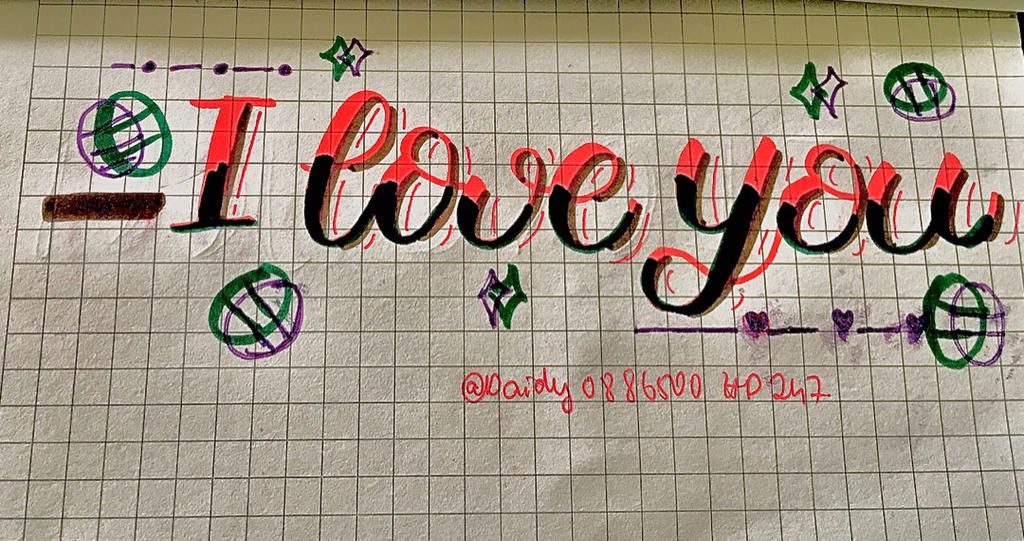 I love you
@Daidy 0886500 HD 247